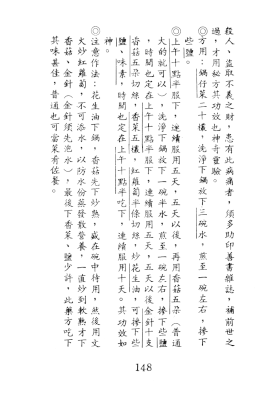 殺人、盜取不義之財,忌有此病痛者,須多助印善書雜誌,補前世之
過,才用秘方其功效也神奇靈驗。
◎方用:鍋仔菜二十欉,洗淨下鍋放下三碗半水,煎至一碗左右,摻下
些鹽
上午十點半服下,連續服用五天,五天以後,再用香菇五朵(普通
大的就可以),洗淨下鍋放下一碗半水,煎至一碗左右,摻下些鹽
,時間也定在上午十點半服下,連續服用五天,五天以後金針十支
香菇五朵切絲,香菜五欉,紅蘿蔔半條切絲,炒花生油,可摻下些
鹽、味素,時間也定在上午十點半吃下,連續服用十天。其功效如
神。
◎注意作法:花生油下鍋,香菇先下炒熟,盛在碗中待用,然後用文
火炒紅蘿蔔,不可添水,以防水份蒸發散營養,一直炒到軟熟才下
香菇、金針(金針須先泡水),最後下香菜、鹽少許,此藥方吃下
其味甚佳,普通也可當菜肴佐餐。
148